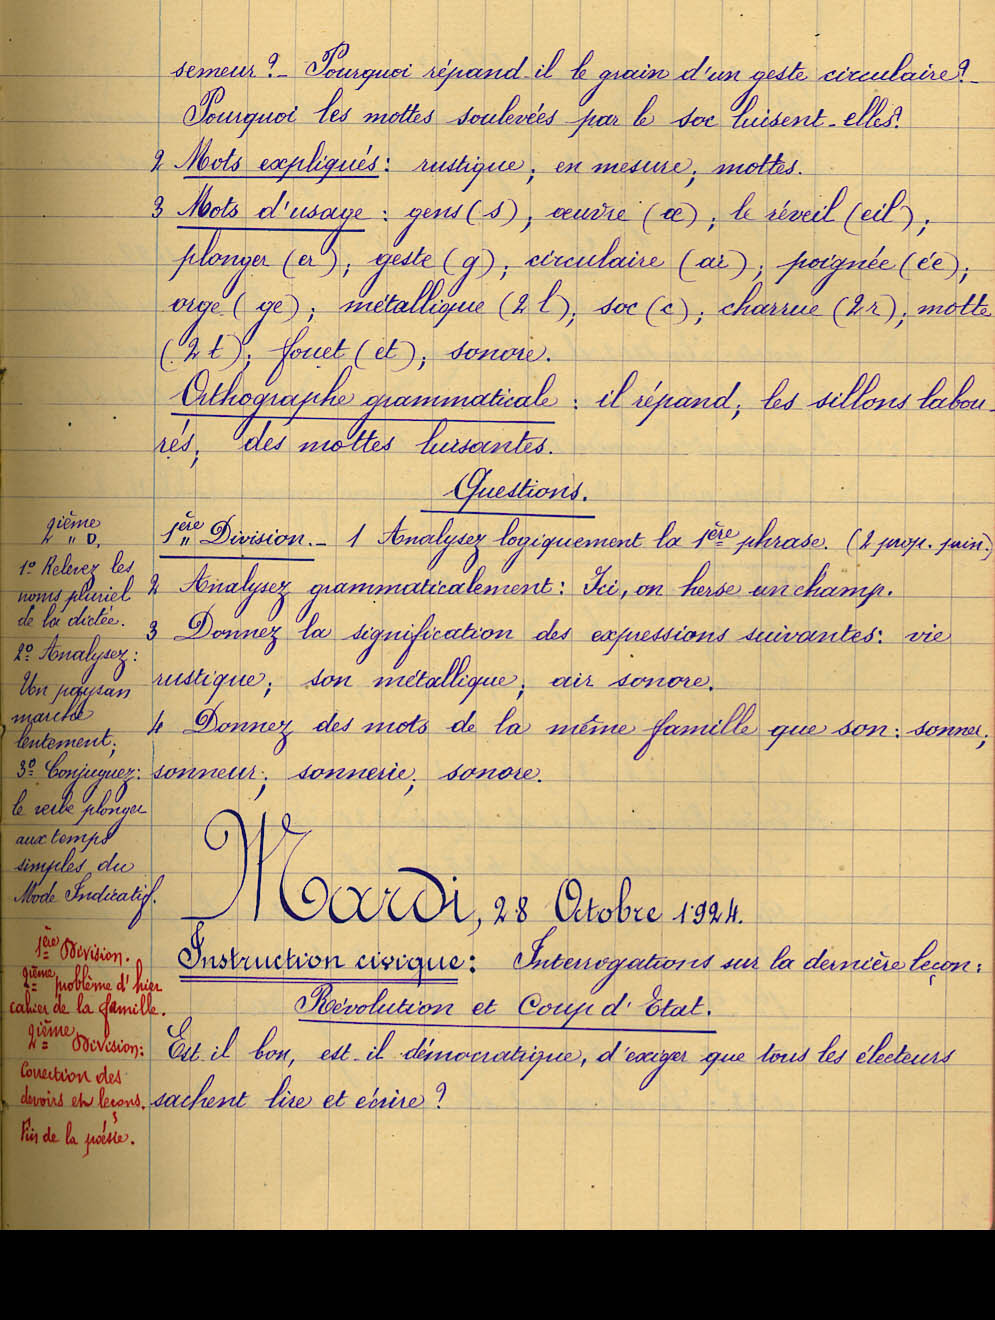 semeur ? _ Pourquoi répand-il le grain d'un geste circulaire ? _
Pourquoi les mottes soulevées par le soc luisent-elles ?
2 Mots expliqués : rustique ; en mesure ; mottes.
3 Mots d'usage : gens (s) ; œuvre (œ) ; le réveil (eil) ;
plonger (er) ; geste (g) ; circulaire (ai) ; poignée (ée) ;
orge (ge) ; métallique (2 l) ; soc (c) ; charrue (2 r) ; motte
(2 t) ; fouet (et) ; sonore.
Orthographe grammaticale : il répand ; les sillons labou-
rés ; des mottes luisantes.
Questions.
1ère Division. _ 1 Analysez logiquement la 1ère phrase. (2 prop. prin.)
2 Analysez grammaticalement : Ici, on herse un champ.
3 Donnez la signification des expressions suivantes : vie
rustique ; son métallique ; air sonore.
4 Donnez des mots de la même famille que son : sonner ;
sonneur ; sonnerie ; sonore.
2ième " D.
1º Relevez les
noms pluriel
de la dictée.
2º Analysez :
Un paysan
marche
lentement ;
3º Conjuguez :
le verbe plonger
aux temps
simples du
Mode Indicatif.
Mardi, 28 Octobre 1924.
Instruction civique : Interrogations sur la dernière leçon :
Révolution et Coup d'Etat.
Est-il bon, est-il démocratique, d'exiger que tous les électeurs
sachent lire et écrire ?
1ère Division.
2ième problème d'hier
cahier de la famille.
2ième Division :
Correction des
devoirs et leçons.
Fin de la poésie.